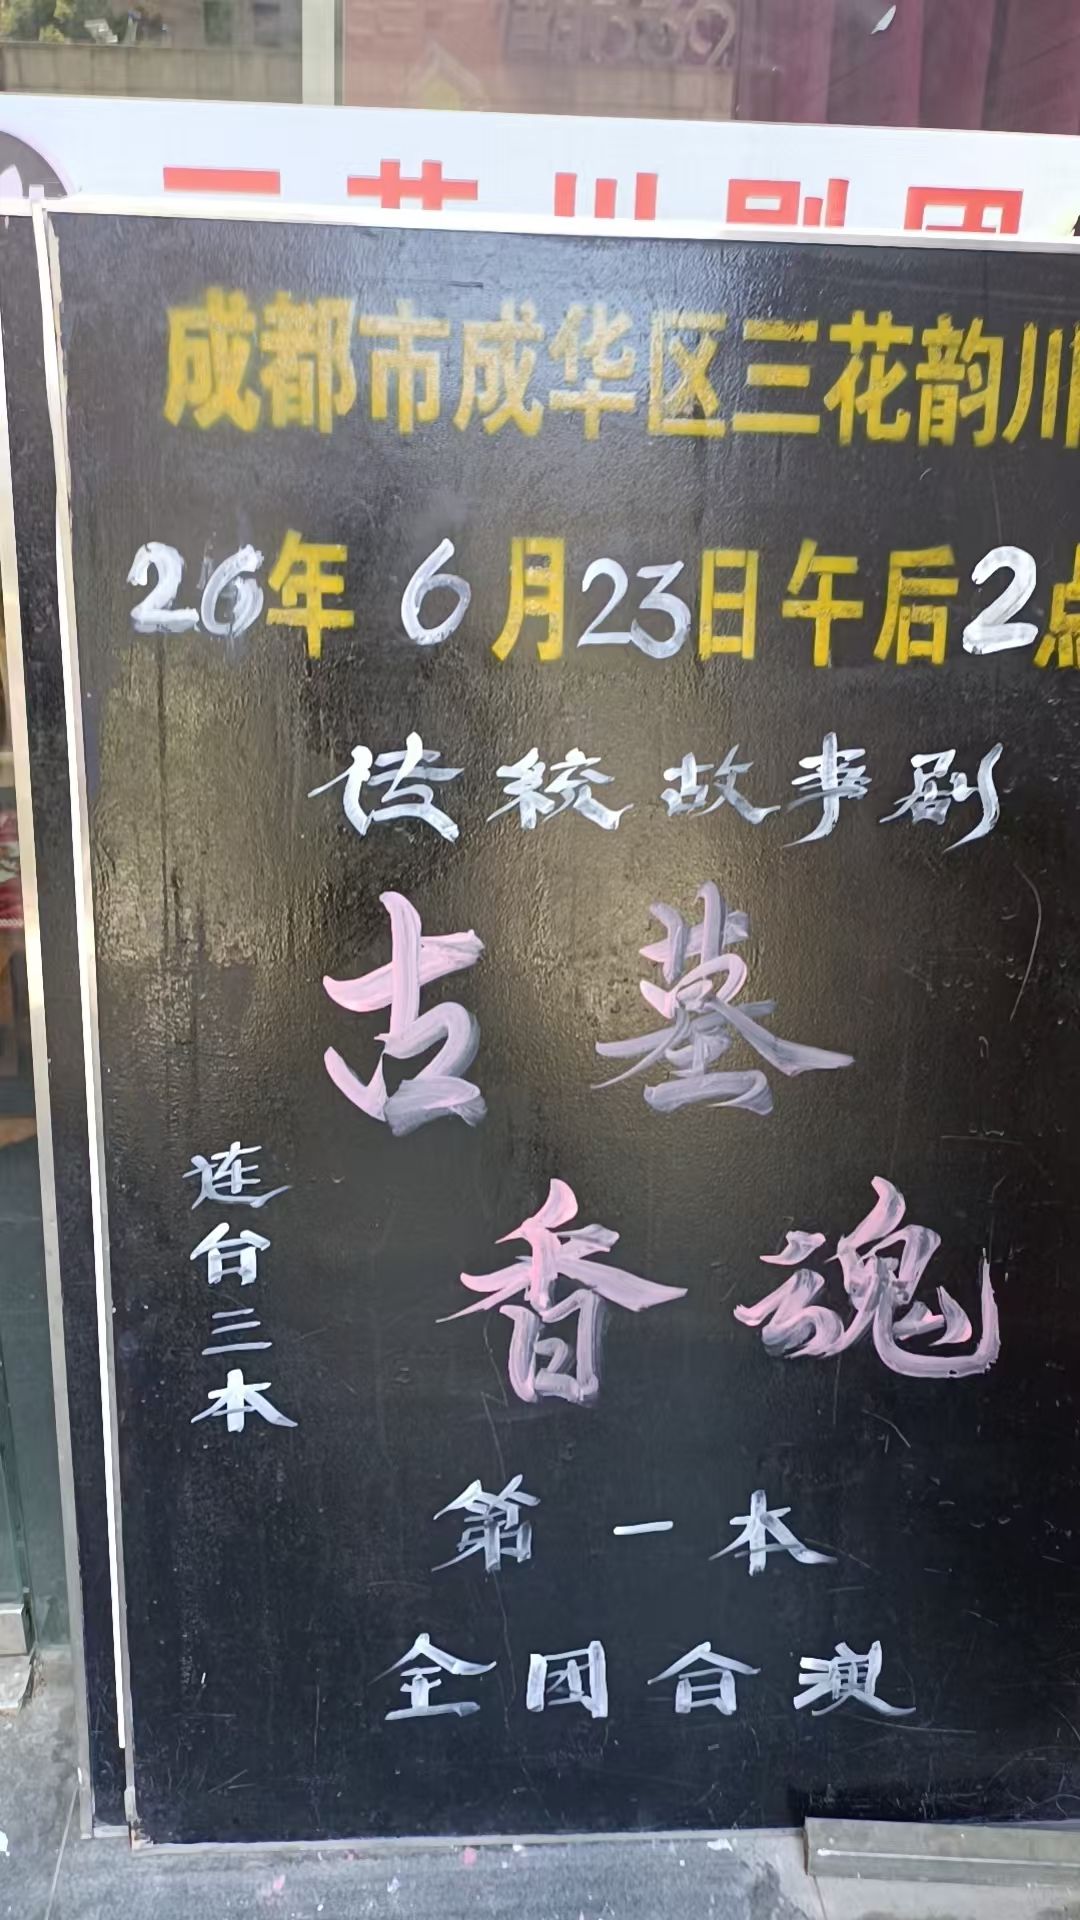 成都市成华区三花韵川
26年 6月23日午后2点
传统故事剧
古墓
香魂
连台三本
第一本
全团合演